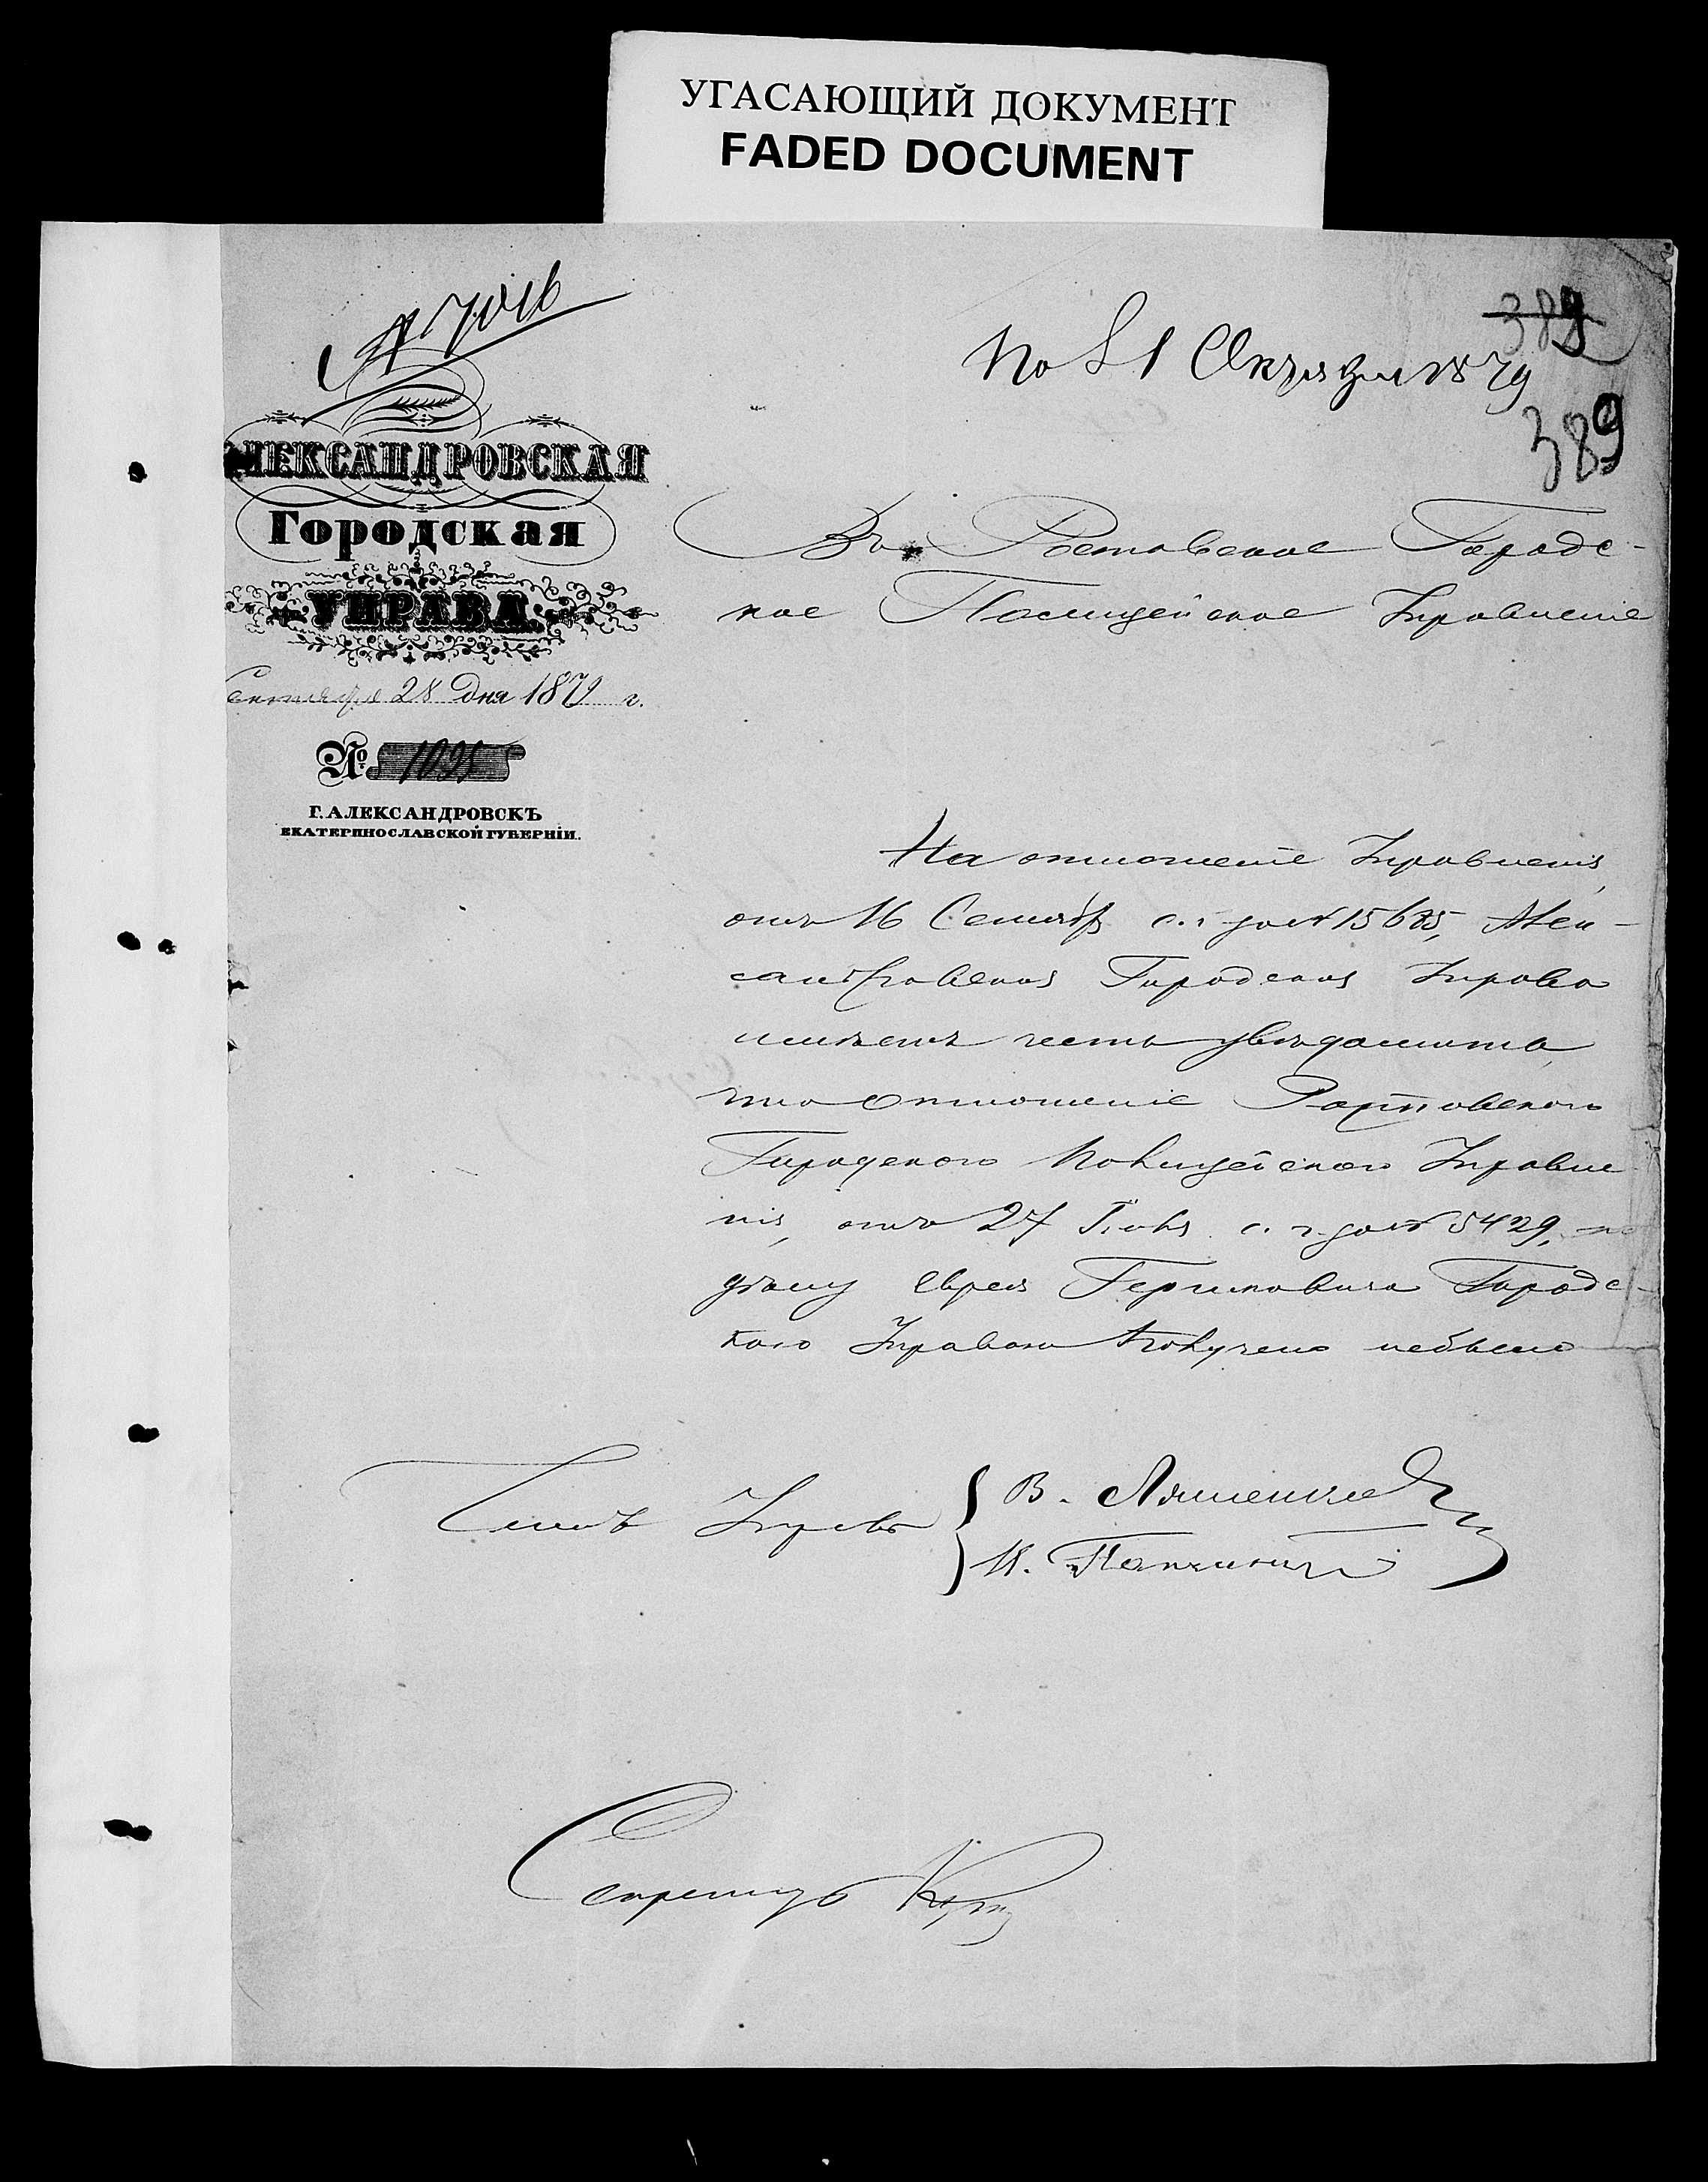 УГАСАЮЩИЙ ДОКУМЕНТ
FADED DOCUMENT
389
389
АЛЕКСАНДРОВСКАЯ
Городская
УПРАВА.
Сентября 28 дня 1879 г.
№
Г. АЛЕКСАНДРОВСКЪ
ЕКАТЕРИНОСЛАВСКОЙ ГУБЕРНІИ.
Въ Ростовское Городс-
кое Полицейское Управленіе
На отношеніе Управленія,
отъ 16 Сентяб с. г. за № Алек-
сандровская Городская Управа
имѣетъ честь увѣдомить,
что отношеніе Ростовского
Городского Полицейского Управле
нія, отъ 27 с. г. за № 5429, по
дѣлу еврея Городс-
кою Управою получено небыло
Члены Управы
В. Ляшенко
И.
Секретарь